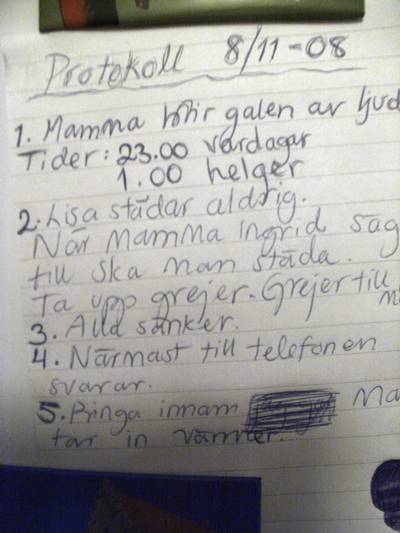 Protokoll 8/11-08
1. Mamma blir galen av ljud
Tider: 23.00 vardagar
1.00 helger
2. Lisa städar aldrig.
När Mamma ingrid säg
till ska man städa.
Ta upp grejer. Grejer till
3. Alld sänker.
4. Närmast till telefonen
svarar.
5. Ringa innam Ma
tar in vänner.